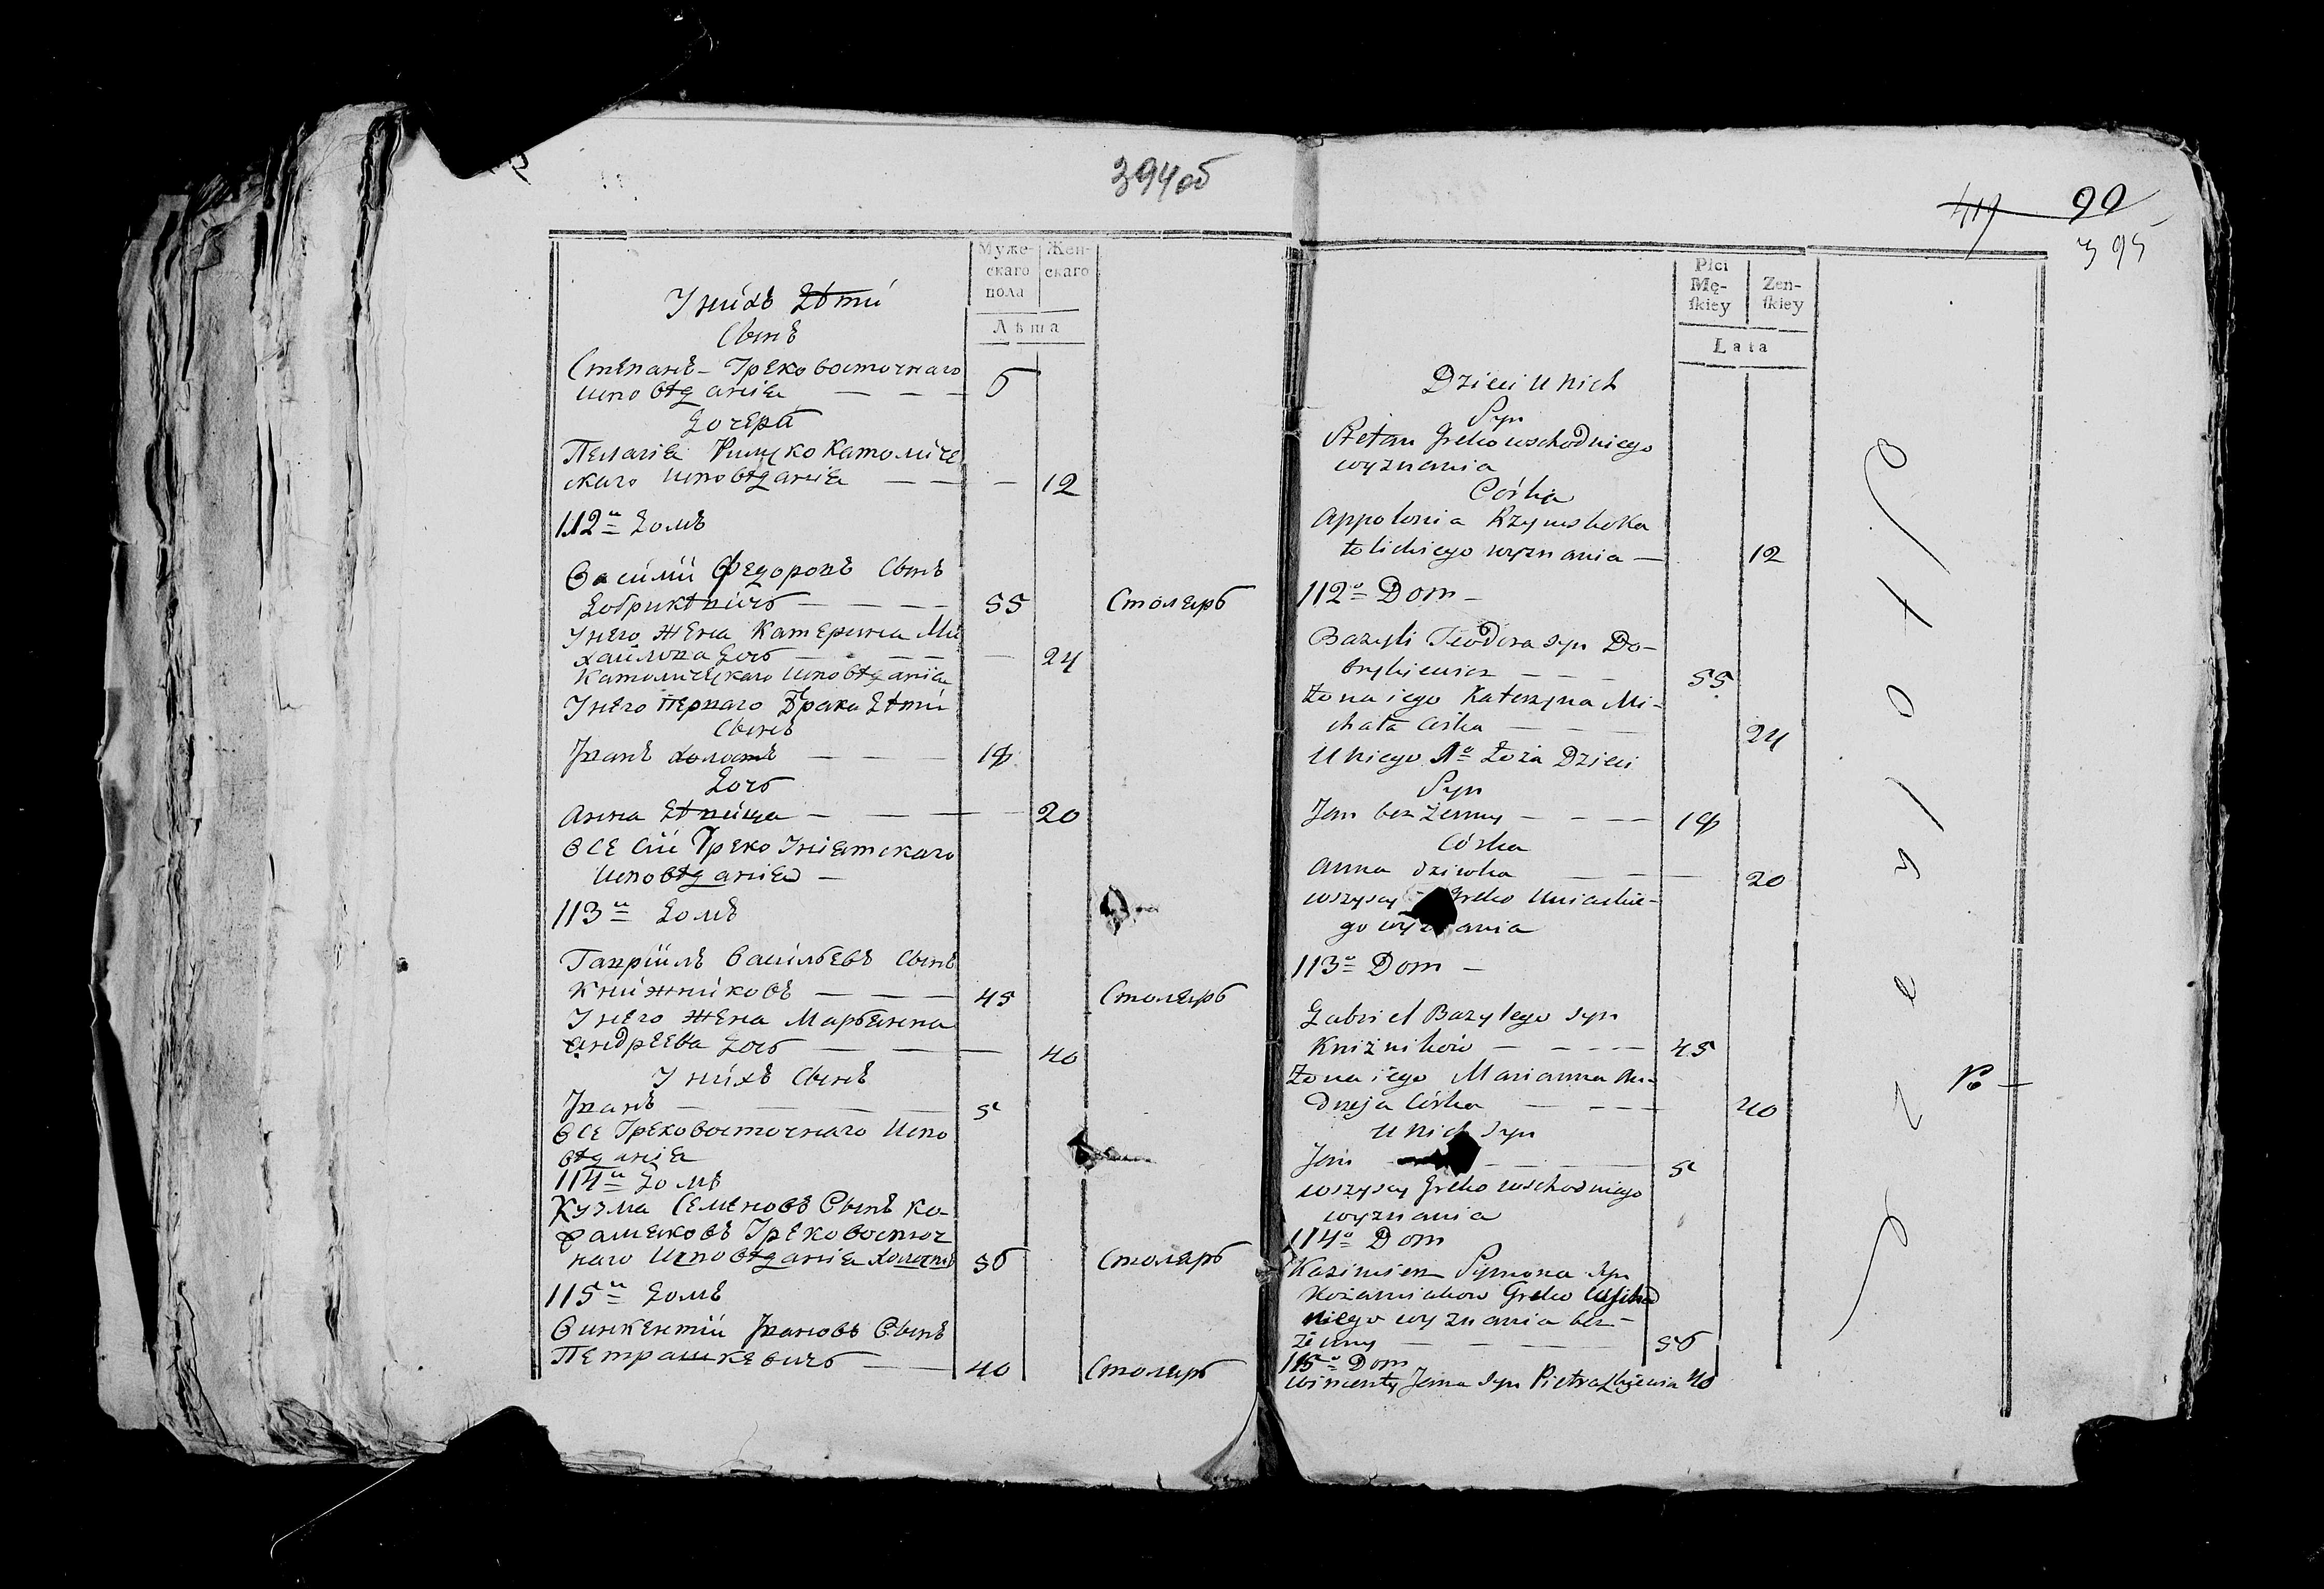 394об
Муже-
скаго
пола
Жен-
скаго
Лѣта
У нихъ дѣти
Сынъ
Степанъ - Греко восточнаго
исповѣданія — — — 6
Дочеръ
Пелагія Римско Католиче
скаго исповѣданія — — — 12
112й домъ
Василій Федоровъ Сынъ
Добрикѣвичъ — — — — 55 Столяръ
У него жена Катерина Ми
хайлова дочь — — — — — 24
Католическаго исповѣданія
У него перваго брака дѣти
Сынъ
Иванъ холостъ — — — 18
Дочь
Анна дѣвица — — — — 20
Всѣ сіи Греко Уніатскаго
исповѣданія —
113й домъ
Гавріилъ Васильевъ Сынъ
Книжниковъ — — — 45 Столяръ
У него жена Марьянна
Андреева дочь — — — 40
У нихъ Сынъ
Иванъ — — — — 5
Все Греко восточнаго испо
вѣданія
114й домъ
Кузма Семеновъ Сынъ Ко-
Греко восточ
наго исповѣданія холостъ 56 Столяръ
115й домъ
Винкентій Ивановъ Сынъ
Петрашкевичъ — — 40 Столяръ
419 99
395
Płci
Mę-
ſkiey
Zen-
ſkiey
Lata
Dzieci u nich
Syn
Stefan Greko wschodniego
wyznania
Córka
Appolonia Rzymsko Ka
tolickiego wyznania — 12
112o Dom —
Bazyli Teodora syn Do-
brykiewicz — — — 55
Żona iego Katerzyna Mi-
chała Córka — — — 24
U niego 1o Łoża Dzieci
Syn
Jan bez Żenny — — — — 18
Córka
Anna dziwka — — — 20
wszyscy Greko Uniackie-
go wyznania
113o Dom —
Gabriel Bazylego syn
Kniżników — — — — 45
Żona iego Marianna An-
drzeja Córka — — — — 40
U nich syn
Jan — — — — 5
wszyscy Greko wschodniego
wyznania
114o Dom
Kazimierz Symona syn
Greko wscho
niego wyznania bez-
żenny — — — — 56
115o Dom
Wincenty Jana syn Pietraszkiewicz 40